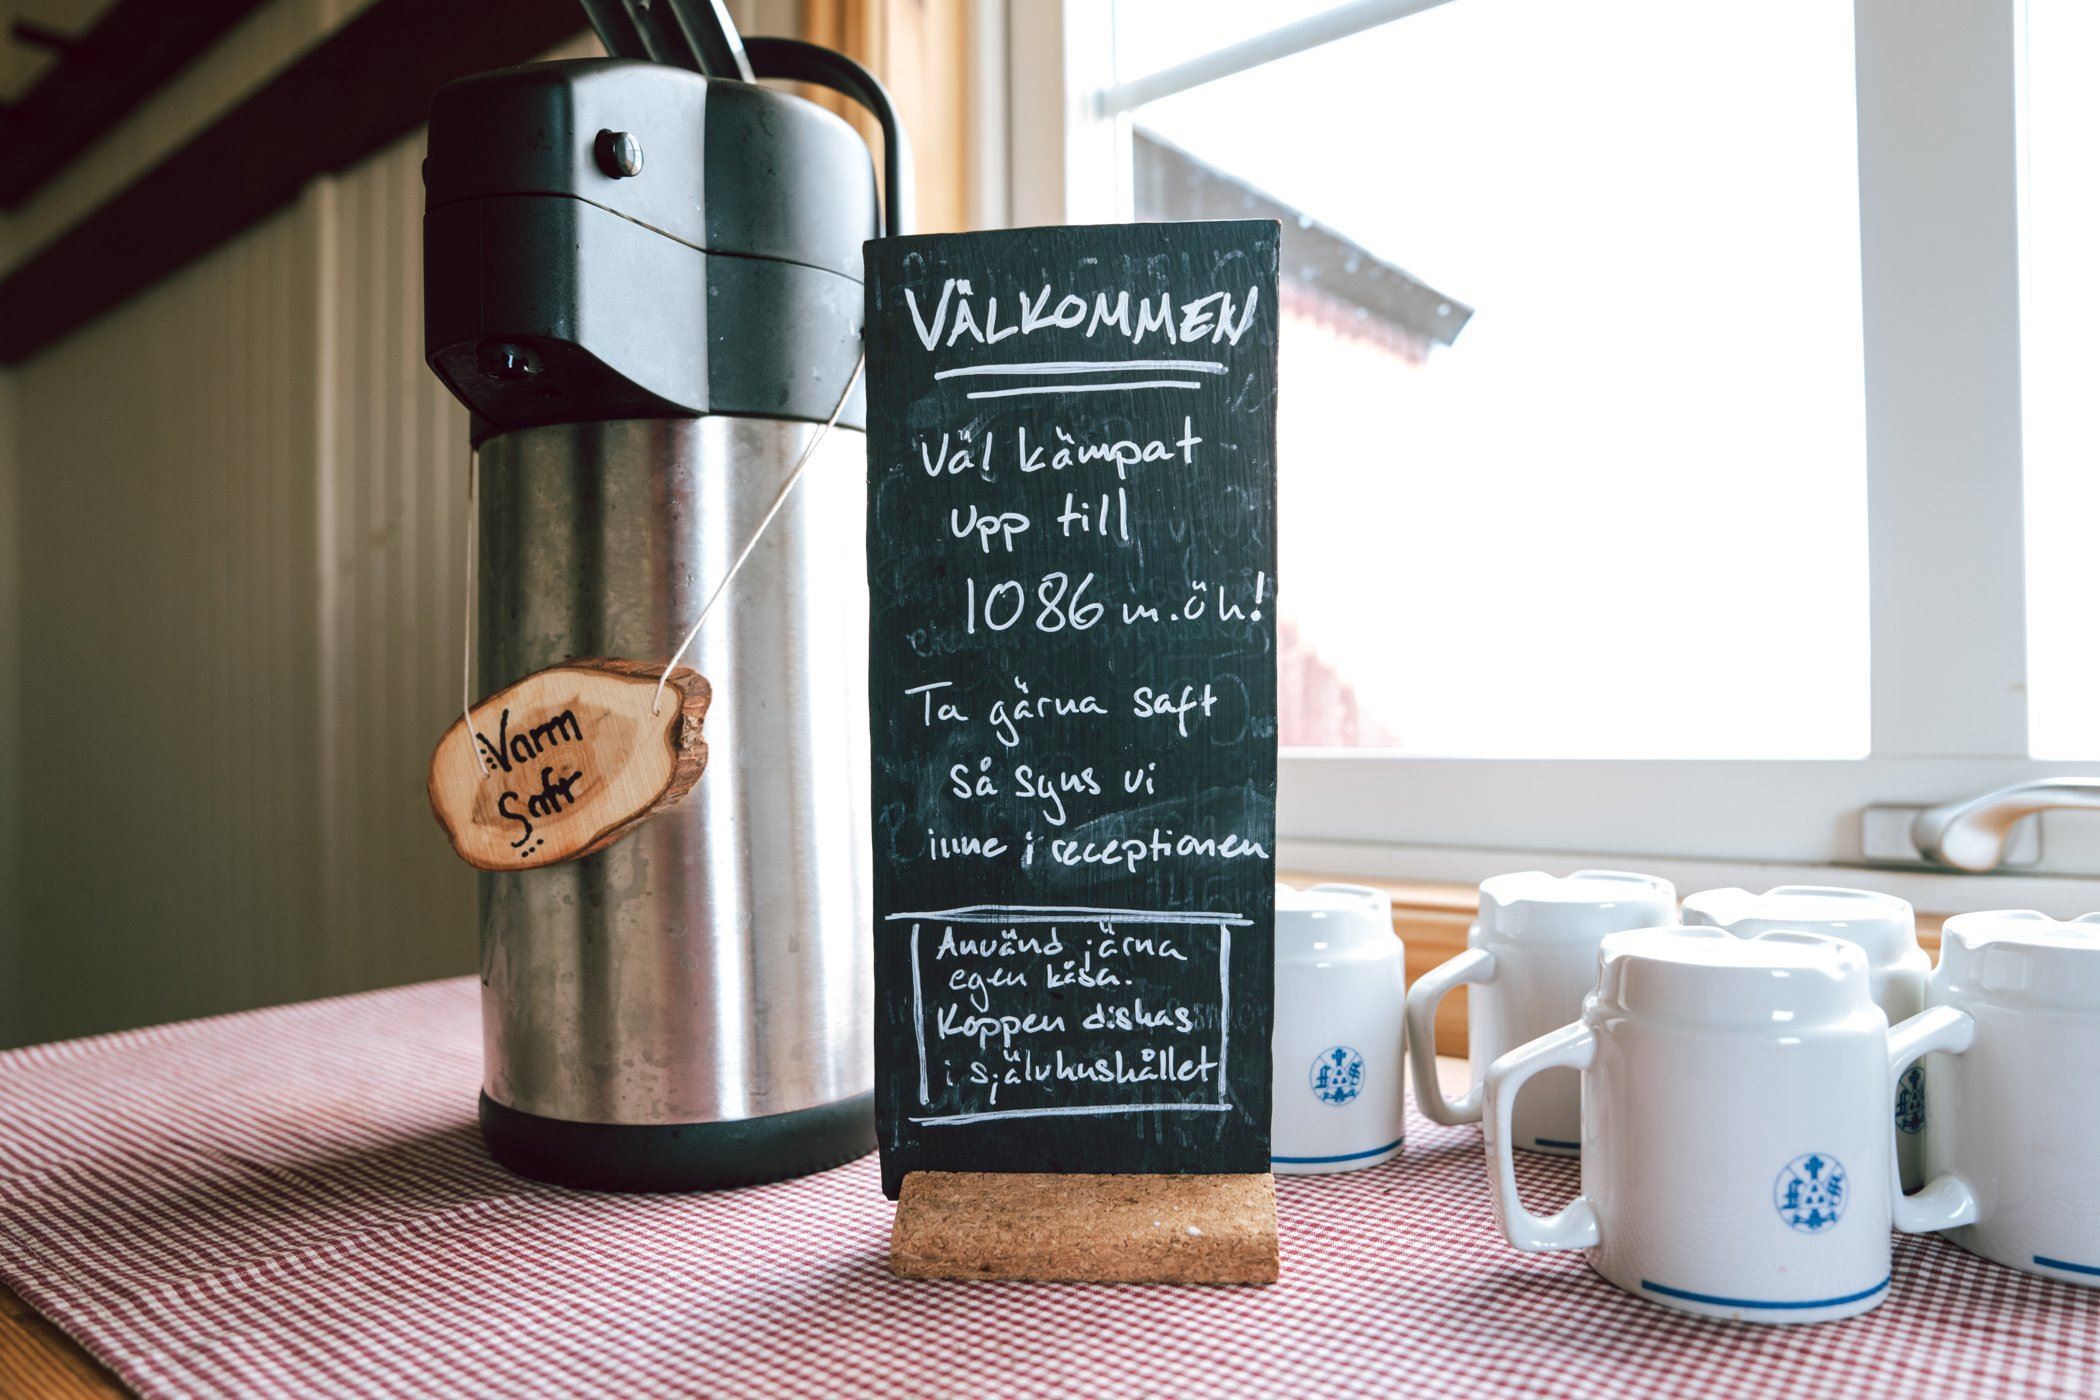 VÄLKOMMEN
Väl kämpat
upp till
1086 m.öh!
Ta gärna saft
så syns vi
inne i receptionen
Använd järna
egen kåsa.
Koppen diskas
i självhushållet
Varm
Saft